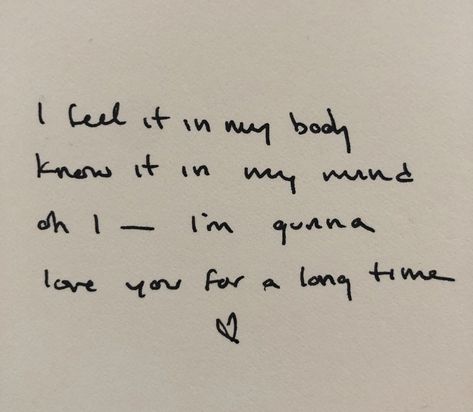 I feel it in my body
know it in my mind
oh I — I'm gunna
love you for a long time
♡